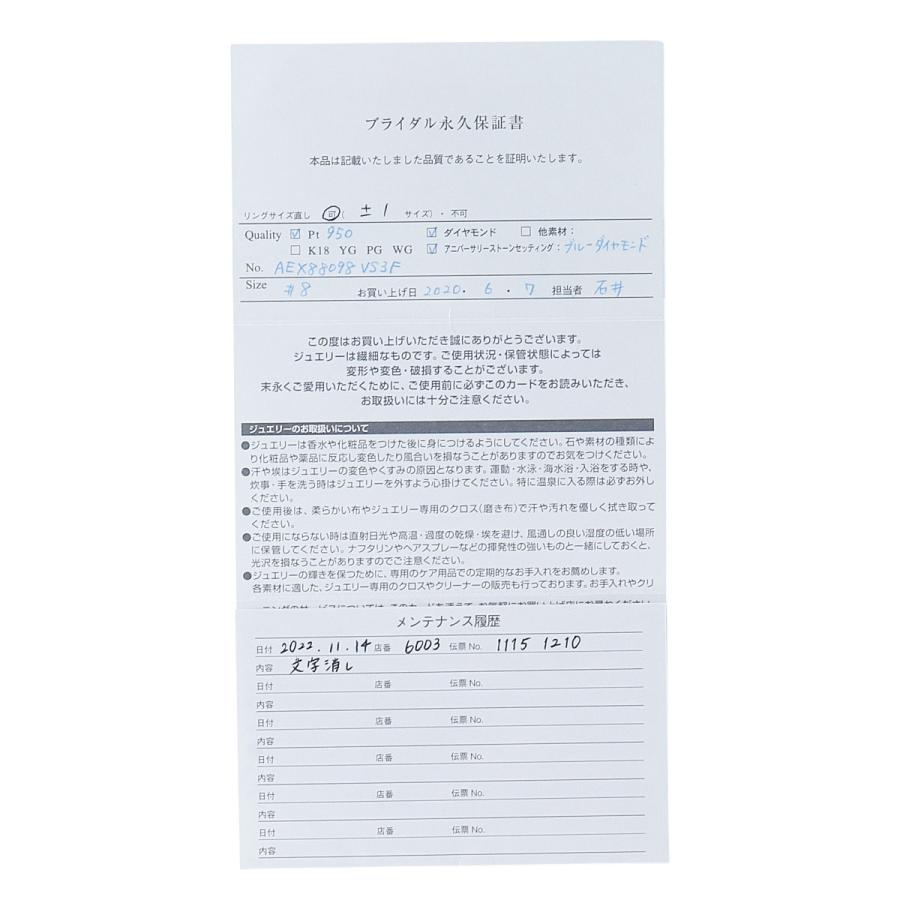 ブライダル永久保証書
本品は記載いたしました品質であることを証明いたします。
リングサイズ直し 可( ±1 サイズ)・不可
Quality ☑ Pt 950 ☑ ダイヤモンド □ 他素材：
□ K18 YG PG WG ☑ アニバーサリーストーンセッティング：ブルーダイヤモンド
No. AEX88098 VS3F
Size #8 お買い上げ日 2020・6・7 担当者 石井
この度はお買い上げいただき誠にありがとうございます。
ジュエリーは繊細なものです。ご使用状況・保管状態によっては
変形や変色・破損することがございます。
末永くご愛用いただくために、ご使用前に必ずこのカードをお読みいただき、
お取扱いには十分ご注意ください。
ジュエリーのお取扱いについて
●ジュエリーは香水や化粧品をつけた後に身につけるようにしてください。石や素材の種類によ
り化粧品や薬品に反応し変色したり風合いを損なうことがありますのでお気をつけください。
●汗や埃はジュエリーの変色やくすみの原因となります。運動・水泳・海水浴・入浴をする時や、
炊事・手を洗う時はジュエリーを外すよう心掛けてください。特に温泉に入る際は必ずお外し
ください。
●ご使用後は、柔らかい布やジュエリー専用のクロス(磨き布)で汗や汚れを優しく拭き取って
ください。
●ご使用にならない時は直射日光や高温・過度の乾燥・埃を避け、風通しの良い湿度の低い場所
に保管してください。ナフタリンやヘアスプレーなどの揮発性の強いものと一緒にしておくと、
光沢を損なうことがありますのでご注意ください。
●ジュエリーの輝きを保つために、専用のケア用品での定期的なお手入れをお薦めします。
各素材に適した、ジュエリー専用のクロスやクリーナーの販売も行っております。お手入れやクリ
メンテナンス履歴
日付 2022.11.14 店番 6003 伝票No. 1115 1210
内容 文字消し
日付 店番 伝票No.
内容
日付 店番 伝票No.
内容
日付 店番 伝票No.
内容
日付 店番 伝票No.
内容
日付 店番 伝票No.
内容